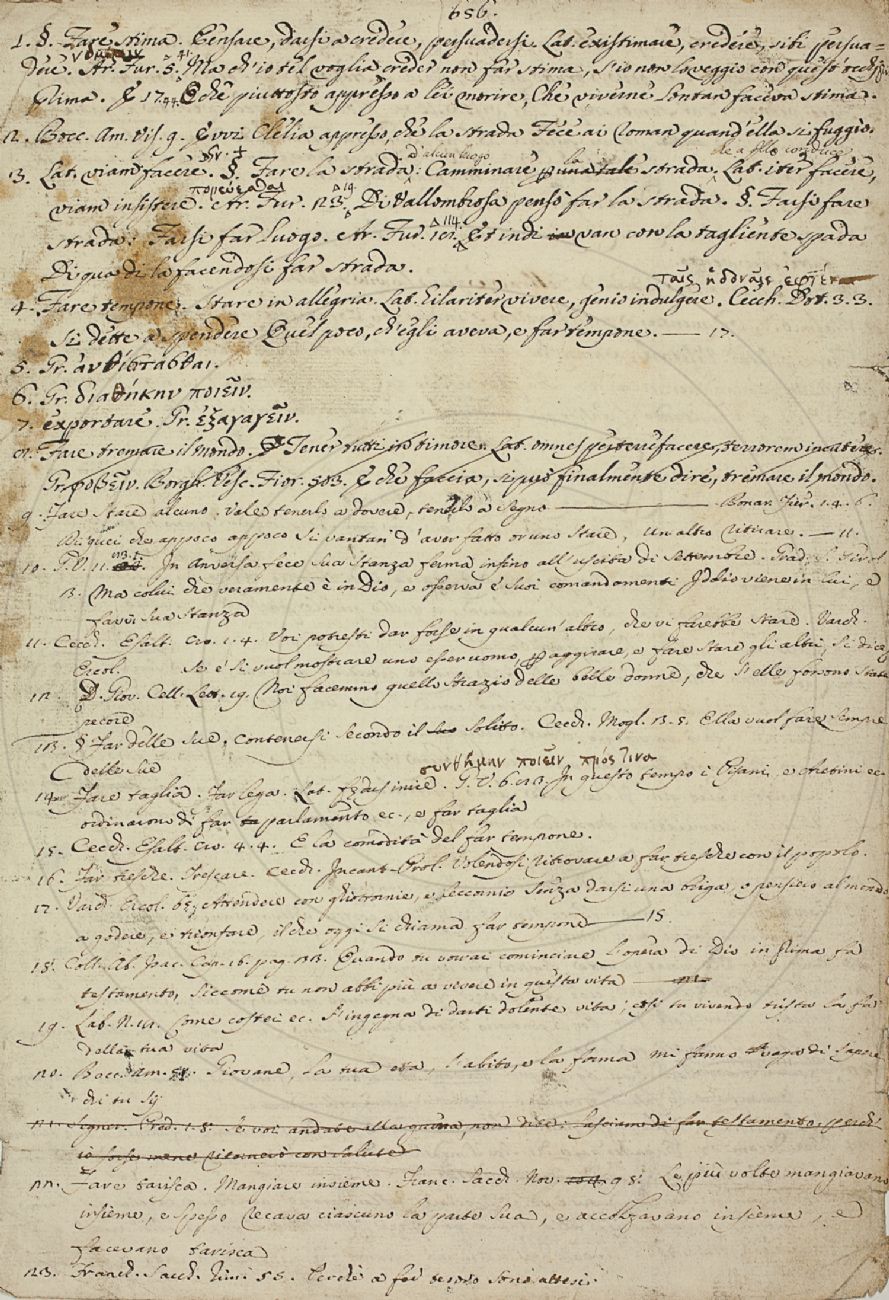 656.
1. §. Fare stima. Pensare, darsi a credere, persuadersi. Lat. existimare, credere, sibi persua=
dere. Ar. Fur. 5. 41. Ma ch'io tel voglia creder non far stima, s'io non lo veggio con quest'occhi
prima. E 17. 44. E che piuttosto appresso a lei morire, Che viverne lontan faceva stima.
2. Bocc. Am. Vis. 9. Evvi Clelia appresso, che la strada Fece ai Roman quand'ella si fuggio.
3. Lat. viam facere. §. Fare la strada d'alcun luogo: Camminare per la strada, che a esso conduce. Lat. iter facere,
viam insistere. Gr. πορεύεσθαι. Ar. Fur. Di Vallombrosa pensò far la strada. §. Farsi fare
strada: Farsi far luogo. Ar. Fur. Et indi van con la tagliente spada
Di qua di la facendosi far strada.
4. Fare tempone. Stare in allegria. Lat. hilariter vivere, genio indulgere. Cecch. Dot. 3. 3.
Si dette a spendere Quel poco, ch'egli aveva, e far tempone. — 17.
5. Gr. ἀνθίστασθαι.
6. Gr. διαθήκην ποιεῖν.
7. exportare. Gr. ἐξαγαγεῖν.
8. Fare tremare il mondo. Tener tutti in timore. Lat. omnes perterrefacere, terrorem incutere.
Gr. φοβεῖν. Borgh. Vesc. Fior. 503. E che faccia, si può finalmente dire, tremare il mondo.
9. Fare stare alcuno. vale tenerlo a dovere, tenerlo a segno — Buonar. Fier. 1. 4. 6.
Di quei che appoco appoco si vantan d'aver fatto or uno stare, Un altro ritirare. — 11.
10. G. V. 11. In Anversa fece sua stanza ferma infino all'uscita di Settembre.
13. Ma colui che veramente è in Dio, e osserva i suoi comandamenti Iddio viene in lui, e
favvi sua stanza
11. Cecch. Esalt. Cr. 1. 4. Voi potresti dar forse in qualcun altro, che vi farebbe stare. Varch.
Ercol. Se e' si vuol mostrare uno esser uomo, per aggirare, e fare stare gli altri, si dice
12. D. Giov. Cell. Lett. 19. Noi facemmo quello strazio delle belle donne, che s'elle fossono state
pecore
13. § Far delle sue, contenersi secondo il suo solito. Cecch. Mogl. 3. 5. Ella vuol fare sempre
delle sue
14. Fare taglia. Far lega. Lat. foedus inire. συνθήκην ποιεῖν πρός τινα G. V. 6. In questo tempo i Pisani, e Aretini ec.
ordinarono di far parlamento ec., e far taglia
15. Cecch. Esalt. Cr. 4. 4. E la comodità del far tempone.
16. Far tresche. Trescare. Cecch. Incant. Prol. Volendosi ritrovare a far tresche con il popolo.
17. Varch. Ercol. 65. Attendere con ghiottornie, e leccornie senza darsi una briga, o pensiero al mondo
a godere, e trionfare, il che oggi si chiama far tempone — 15.
18. Coll. Ab. Isac. Cap. 16. pag. Quando tu vorrai cominciare l'opera di Dio in prima fa
testamento, siccome tu non abbi più a vivere in questa vita —
19. Lab. N. Come costei ec. s'ingegna di darti dolente vita; così tu vivendo trista la fa
della tua vita
20. Bocc. Am. Giovane, la tua età, l'abito, e la forma mi fanno vago di sapere
chi tu sij
21. Segner. Pred. 1. 8. Se voi andate alla guerra, non dice: lasciami di far testamento, perch'
io forse meno ritornerò con salute
22. Fare tarisca. Mangiare insieme. Franc. Sacch. Nov. 98. Le più volte mangiavano
insieme, e spesso recava ciascuno la parte sua, e accozzavano insieme, e
facevano tarisca
23. Franch. Sacch. Rim. 55. Perchè a far tesoro sono attesi.